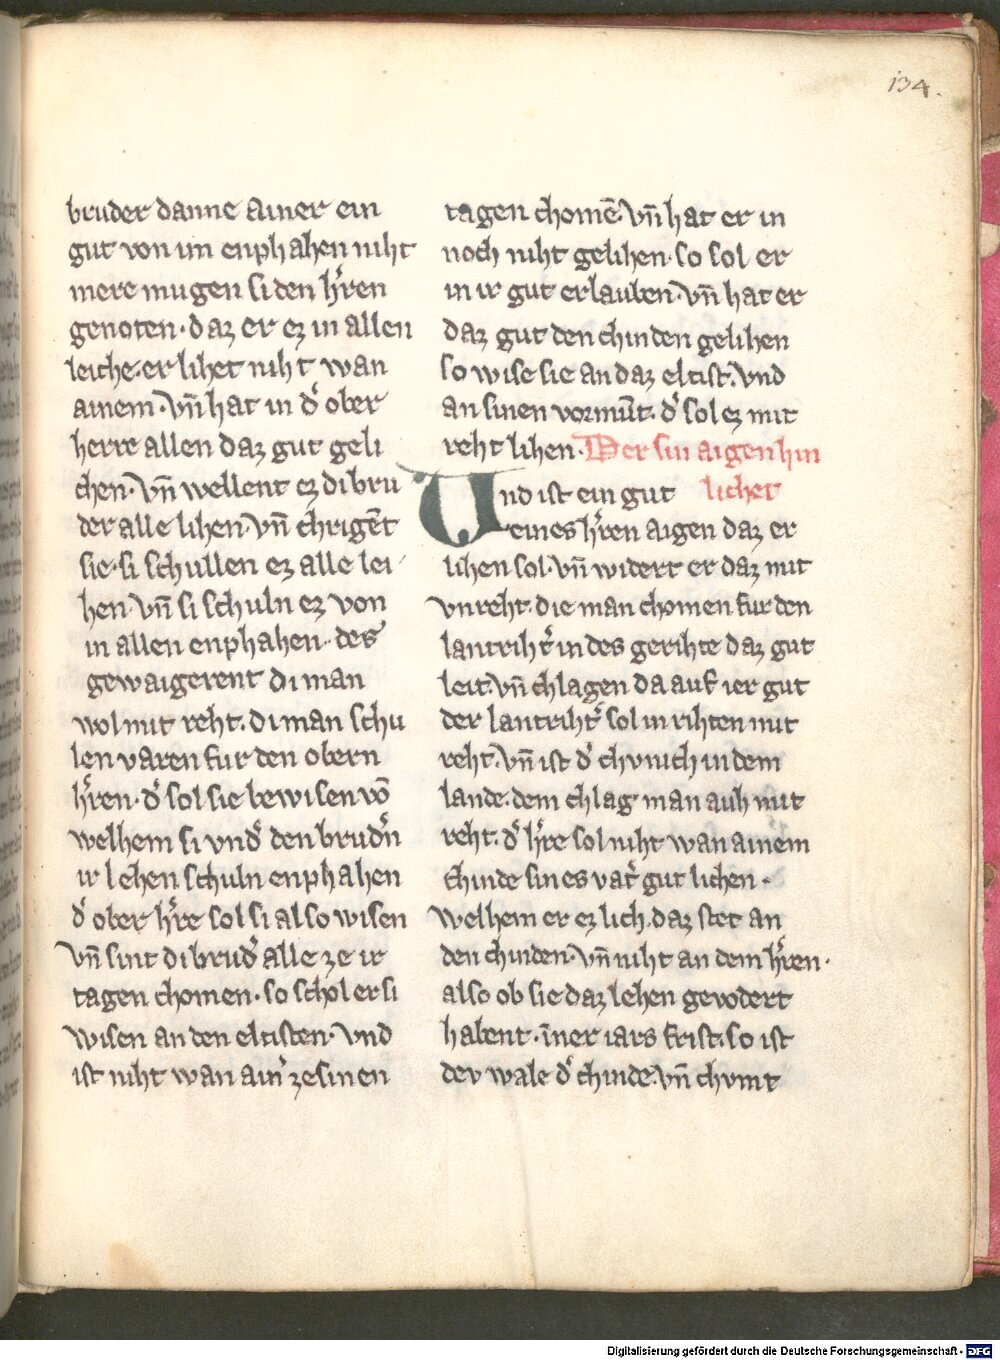 134.
bruder danne ainer ein
gut von im enphahen niht
mere mugen si den h̾ren
genoten· daz er ez in allen
leiche· er lihet niht wan
ainem· vn̄ hat in d̾ ober
herre allen daz gut geli
chen· vn̄ wellent ez di bru
der alle lihen· vn̄ chrigēt
sie· si schullen ez alle lei
hen· vn̄ si schuln ez von
in allen enphahen· des
gewaigerent di man
wol mit reht. di man schu
len varen fur den obern
h̾ren· d̾ sol sie bewisen vō
welhem si vnd̾ den brud̾n
ir lehen schuln enphahen
d̾ ober h̾re sol si also wisen
vn̄ sint di brud̾ alle ze ir
tagen chomen· so schol er si
wisen an den eltisten· vnd
ist niht wan ain̾ ze sinen
tagen chomē· vn̄ hat er in
noch niht gelihen· so sol er
in ir gut erlauben· vn̄ hat er
daz gut den chinden gelihen
so wise sie an daz eltist· vnd
an sinen vormūt. d̾ sol ez mit
reht lihen· Der sin aigen hin
lichet
Und ist ein gut
eines h̾ren aigen daz er
lihen sol· vn̄ widert er daz mit
vnreht· die man chomen fur den
lantriht̾ in des gerihte daz gut
leit· vn̄ chlagen da auf ier gut
der lantriht̾ sol in rihten mit
reht· vn̄ ist d̾ chvnich in dem
lande· dem chlag man auh mit
reht. d̾ h̾re sol niht wan ainem
chinde sines vat̾ gut lichen·
welhem er ez lich· daz stet an
den chinden· vn̄ niht an dem h̾ren·
also ob sie daz lehen gevodert
habent· īner iars frist· so ist
dev wale d̾ chinde· vn̄ chvmt
Digitalisierung gefördert durch die Deutsche Forschungsgemeinschaft - DFG